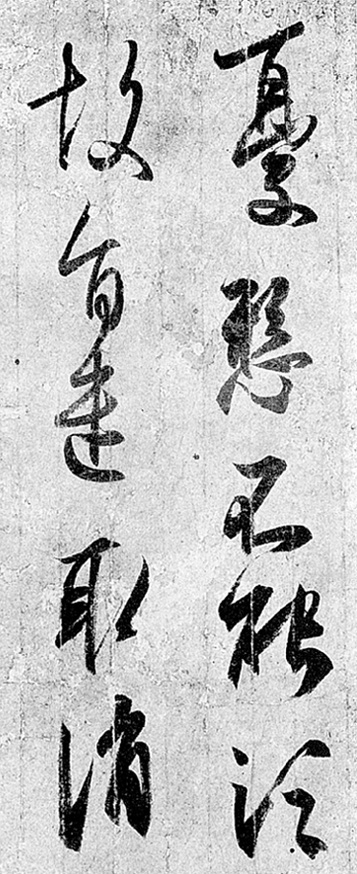 憂懸不能須
故旨遣取消